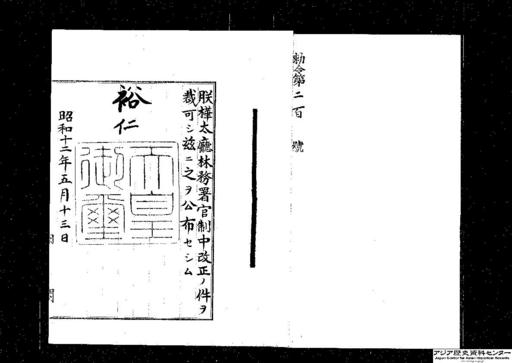 勅令第二百號
朕樺太廳林務署官制中改正ノ件ヲ
裁可シ茲ニ之ヲ公布セシム
裕仁
天皇
御璽
昭和十二年五月十三日
アジア歴史資料センター
Japan Center for Asian Historical Records